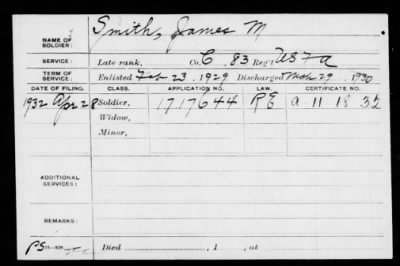 NAME OF SOLDIER: Smith, James M
SERVICE: Late rank, Co. C, 83 Reg't USFA
TERM OF SERVICE: Enlisted Feb 23, 1929 Discharged Mch 29, 1930
DATE OF FILING. CLASS. APPLICATION NO. LAW. CERTIFICATE NO.
1932 Apr 28 Soldier, 1717644 PE a 11 18 32
Widow,
Minor,
ADDITIONAL SERVICES:
REMARKS:
Died , 1 , at